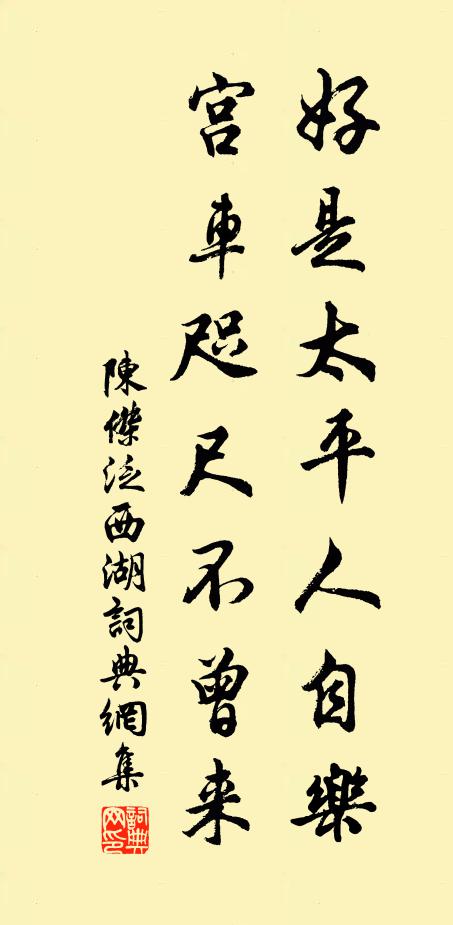 好是太平人自樂
宮車咫尺不曾来
陳傑泛西湖詞典網集
詞典網印